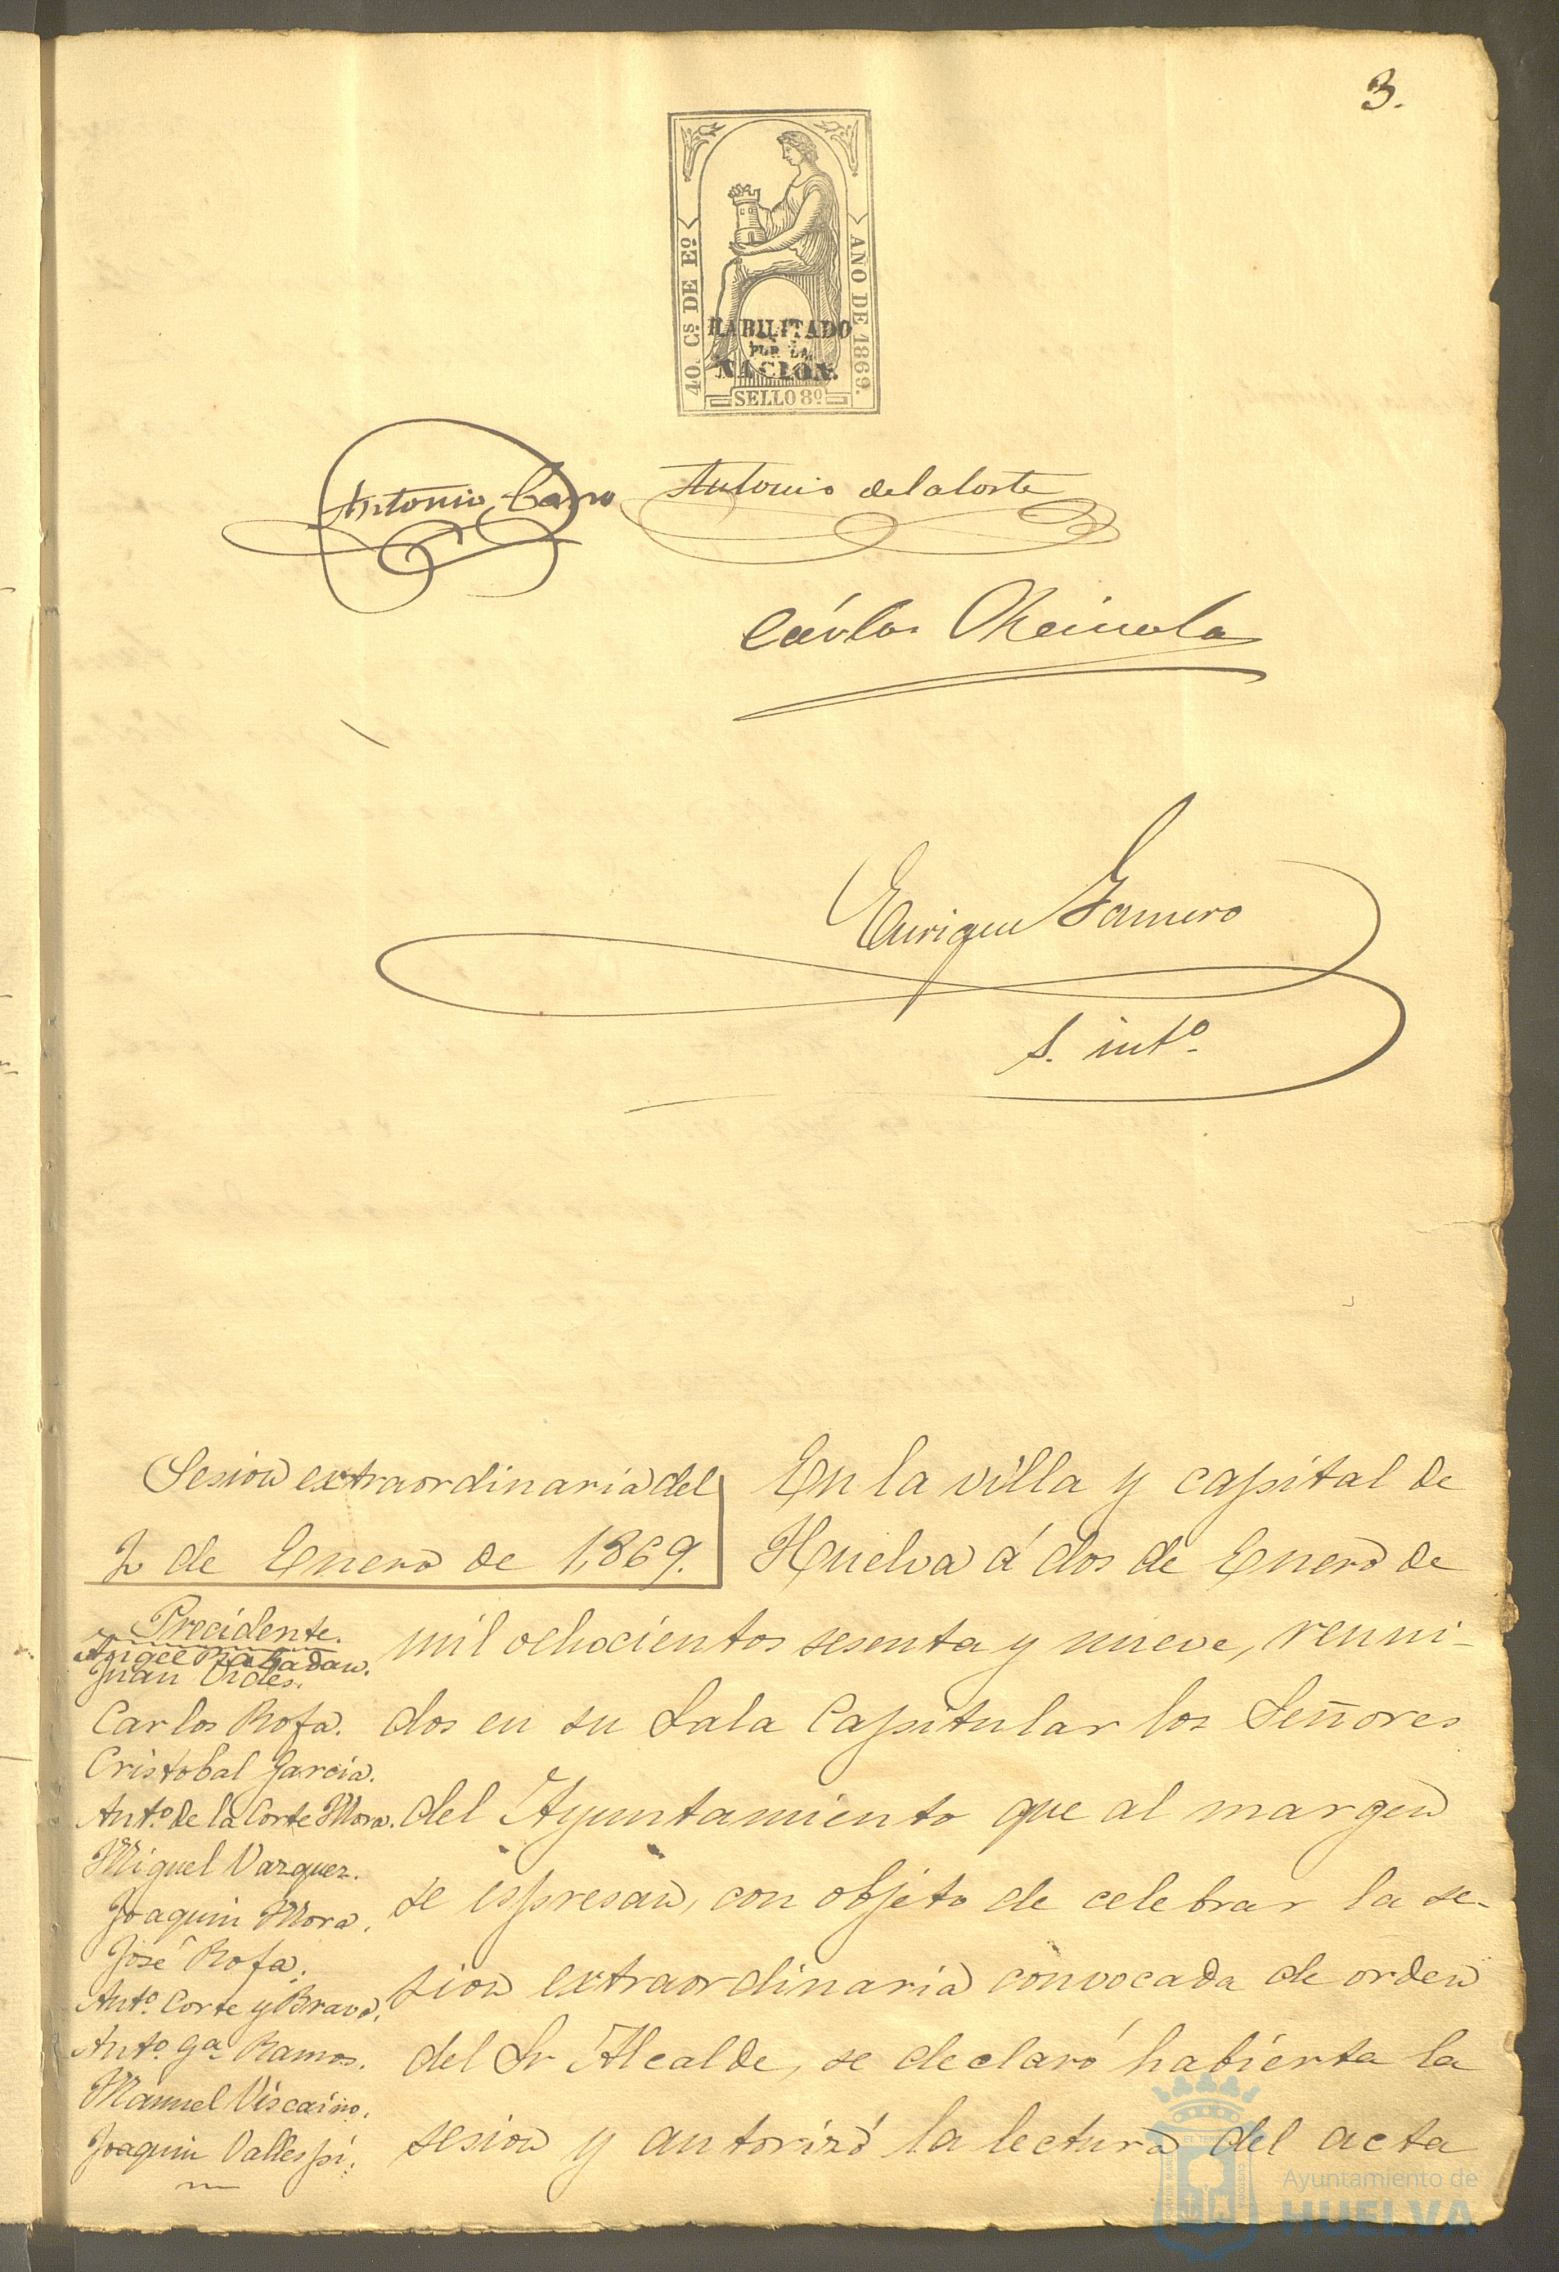 3.
40. Cs DE Eº
AÑO DE 1869.
HABILITADO
POR LA
NACION.
SELLO 8º
Antonio
Antonio de la Corte
Cárlos
Enrique Gamero
S. intº.
Sesion extraordinaria del
2 de Enero de 1,869.
Precidente.
Angel Rabadan.
Juan Vides.
Carlos Rofa.
Cristobal Garcia.
Antº. de la Corte Mora.
Miguel Vazquez.
Joaquin Mora.
José Rofa.
Antº. Corte y Bravo.
Antº. Gª. Ramos.
Manuel Viscaino.
Joaquin Vallespi.
En la villa y capital de
Huelva á dos de Enero de
mil ochocientos sesenta y nueve, reuni-
dos en su Sala Capitular los Señores
del Ayuntamiento que al margen
se espresan, con objeto de celebrar la se-
sion extraordinaria convocada de orden
del Sr Alcalde, se declaró habierta la
sesion y autorizó la lectura del acta
Ayuntamiento de
HUELVA